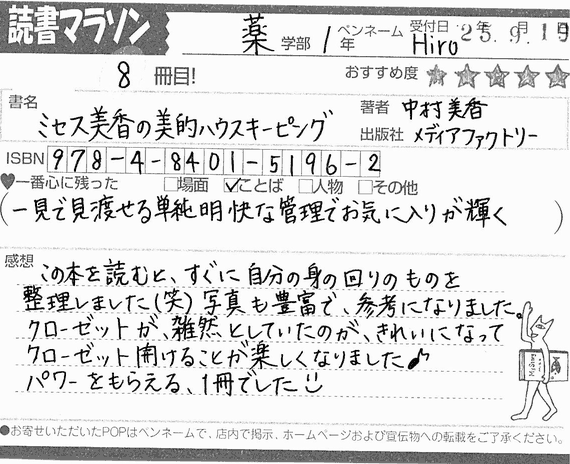 読書マラソン
薬 学部 1年 ペンネーム Hiro 受付日 25年9月19日
8 冊目! おすすめ度 ★★★★★
書名 ミセス美香の美的ハウスキーピング
著者 中村美香
出版社 メディアファクトリー
ISBN 978-4-8401-5196-2
♥一番心に残った □場面 ☑ことば □人物 □その他
(一見で見渡せる単純明快な管理でお気に入りが輝く)
感想
この本を読むと、すぐに自分の身の回りのものを
整理しました(笑)写真も豊富で、参考になりました。
クローゼットが、雑然としていたのが、きれいになって
クローゼット開けることが楽しくなりました♪
パワーをもらえる、1冊でした
●お寄せいただいたPOPはペンネームで、店内で掲示、ホームページおよび宣伝物への転載をご了承ください。